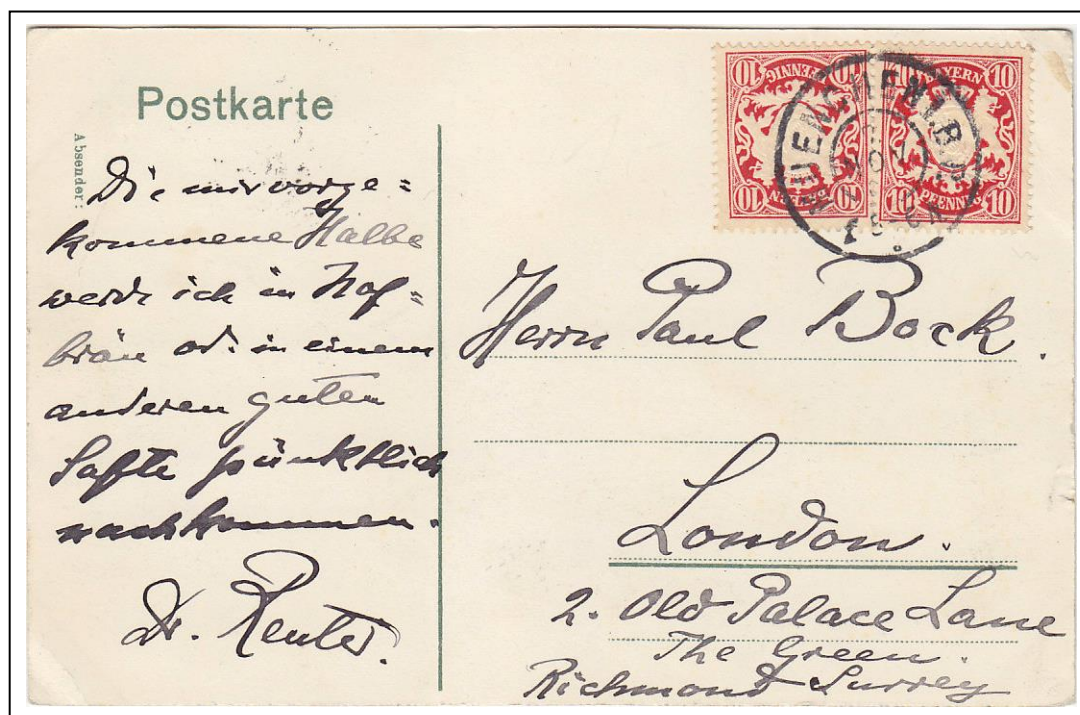 Postkarte
Absender:
Die mir vorge=
kommene Halbe
werde ich in Hof=
bräu od. in einem
anderen guten
Safte pünktlich
nachkommen.
Dr. Reuter.
10 PFENNIG 10
10 10
10 BAYERN 10
10 PFENNIG 10
MUENCHEN
NOV
Herrn Paul Bock.
London.
2. Old Palace Lane
The Green.
Richmond Surrey